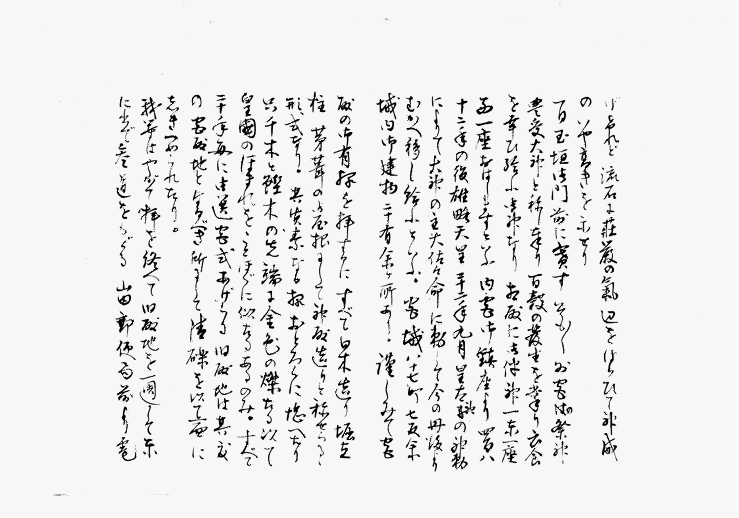 げされど流石に荘厳の気辺をはらひて神威
のいや高きを示せり
一百玉垣御門前に賽す そもそも外宮御祭神
豊受大神と称し奉り百穀の発生を掌り衣食
を幸ひ給ふ御神なり 相殿に御伴神一東一座
西一座おはしますといふ 内宮御鎮座より四百八
十二年の後雄略天皇二十二年九月皇太神の神勅
によりて大神の主大佐々命に勅して今の丹後より
むかへ移し給ふといふ。宮域八十七町七反余
域内御建物二十有余ヶ所あり。謹しみて宮
殿の御有様を拝するに すべて白木造り堀立
柱 茅葺の屋根にして神殿造りと称せらるゝ
形式なり。其質素なる様おどろくに堪へたり
只千木と鰹木の先端に金色の燦たる以て
皇国のほまれをことほぐに似たるあるのみ。すべて
二十年毎に御遷宮式あげらる 旧殿地は其前
の宮殿地となすべき所にして清礫を以て面に
しきつめられたり。
我等はやがて拝を終へて旧殿地を一周して東
に出で参道をくだる 山田郵便局前より電